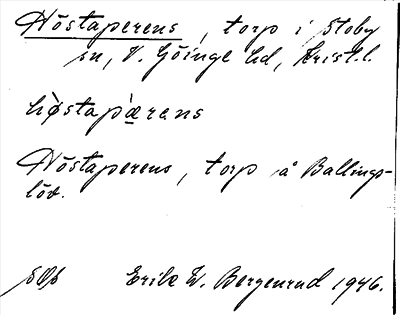 Höstaperens, torp i Stoby
sn, V. Göinge hd, Krist. l.
høstapærens
Höstaperens, torp å Ballings-
löv.
Erik W. Bergenrud 1946.